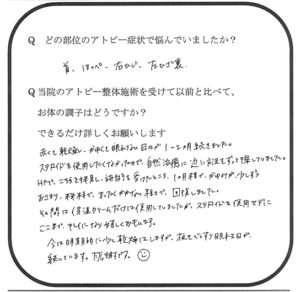 Q どの部位のアトピー症状で悩んでいましたか？
首、ほっぺ、右ひじ、左ひざ裏
Q 当院のアトピー整体施術を受けて以前と比べて、
お体の調子はどうですか？
できるだけ詳しくお願いします
赤くて乾燥し、かゆくて眠れない日々が1~2ヶ月続きました。
ステロイドを使用したくなかったので、自然治療に近い方法をずっと探していました。
HPでこちらを拝見し、施術を受けたところ、1ヶ月程で、かゆみが少しずつ
おさまり、約半年で、まったくかゆみない程まで、回復しました。
その間は保湿クリームだけは使用していましたが、ステロイドを使用せずに
ここまでキレイになり嬉しくおもいます。
今は時期的に少し乾燥はしますが、夜ぐっすり眠れる日が
続いています。感謝です。